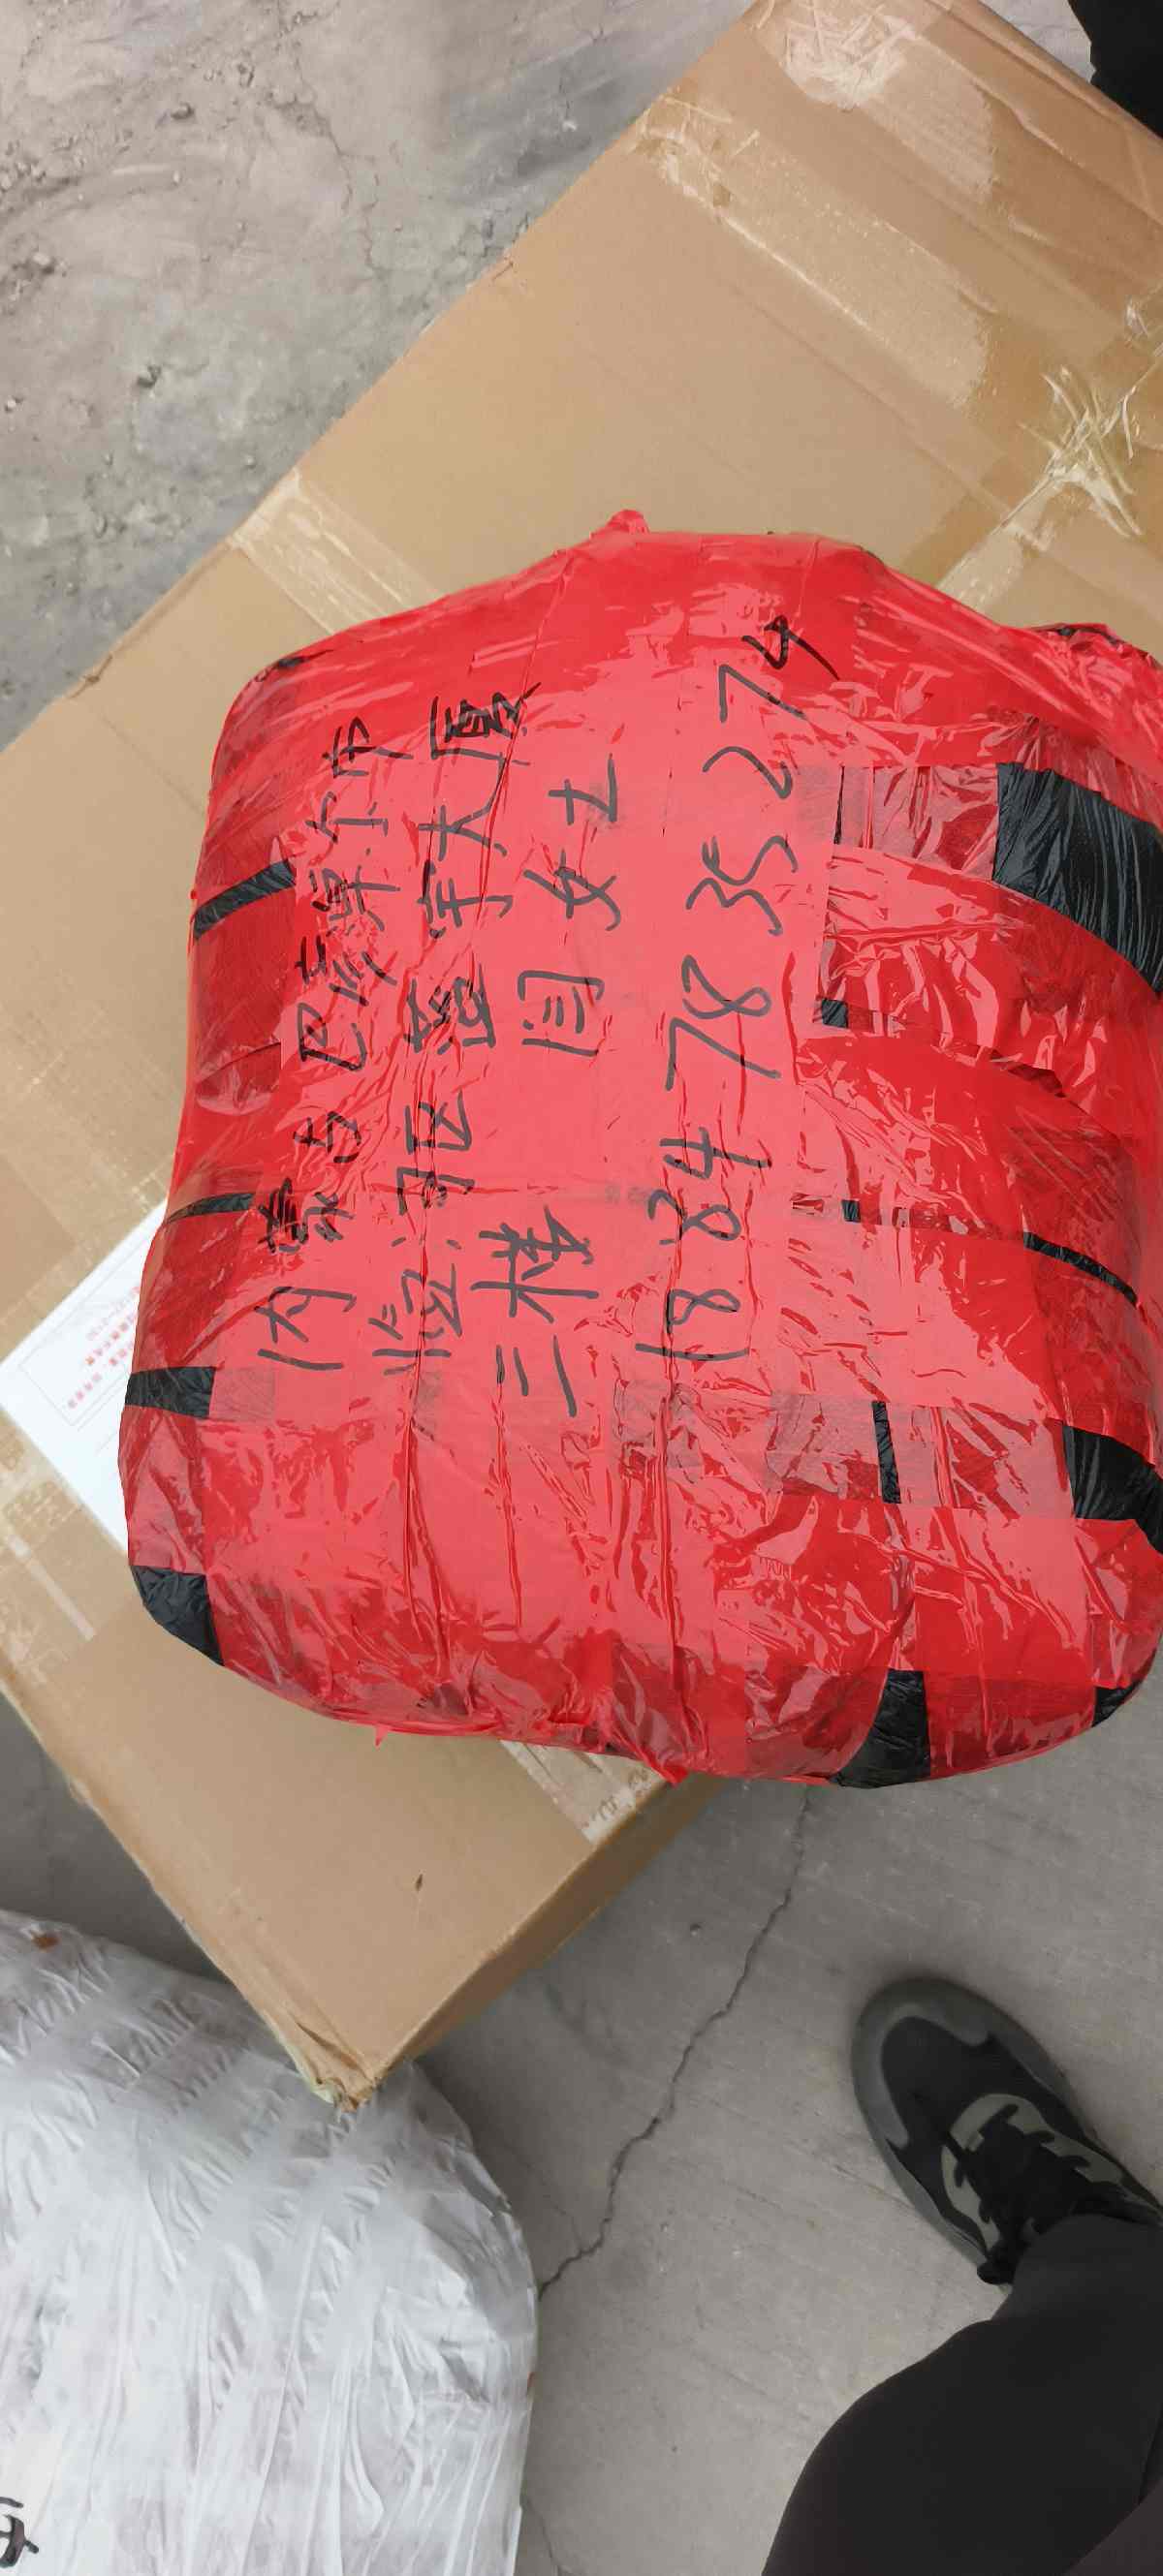 内蒙古巴彦淖尔市
临河区蓝宇大厦
二楼 闫女士
18847835274